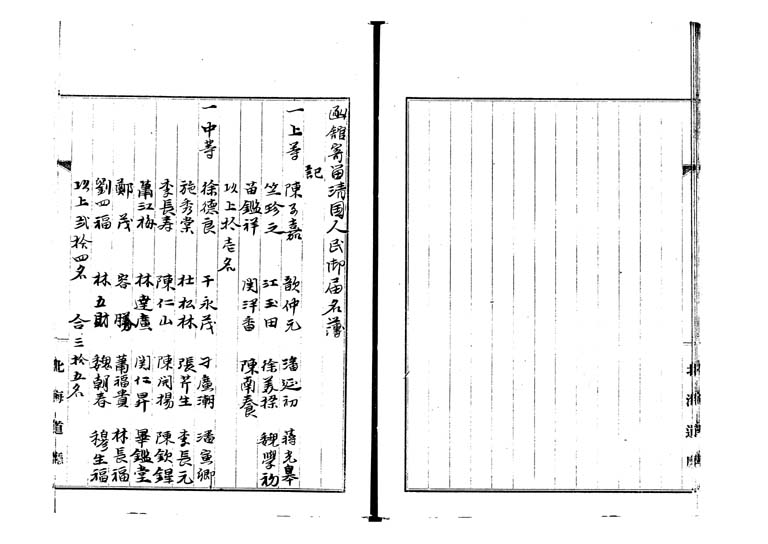 函館寄留清国人民御届名簿
記
一上等 陳玉嘉 歙仲元 潘延初 蒋克皋
竺珍之 江玉田 徐美揆 魏學初
苗鑑祥 関澤番 陳南養
以上拾壱名
一中等 徐徳良 于永茂 刁廣潮 潘寅卿
施秀棠 杜松林 張芹生 李長元
李長寿 陳仁山 陳開揚 陳欽鐸
蕭江梅 林達廣 関仁昇 畢鑑堂
鄭茂 容勝 蕭福貴 林長福
劉四福 林五財 魏朝春 穆生福
以上弐拾四名 合三拾五名
北海道廳
北海道廳